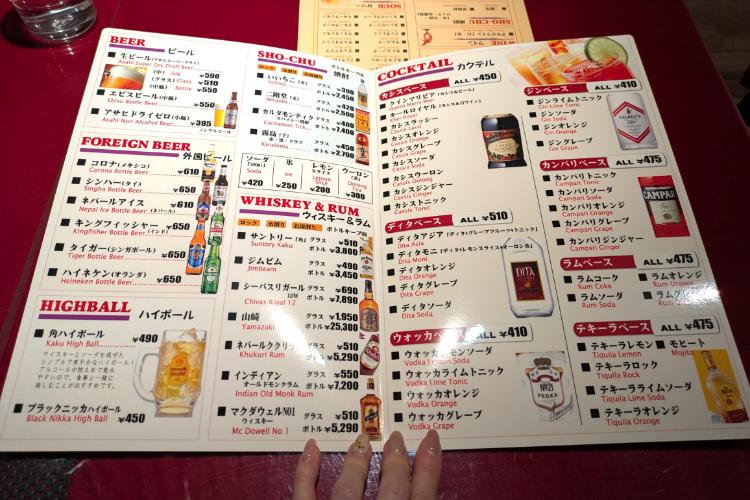 BEER ビール
生ビール(アサヒスーパードライ)
Asahi Super Dry Draft Beer
(中) Jug ¥590
(グラス) Glass ¥510
(中瓶) Bottle ¥550
エビスビール(中瓶) ¥550
Ebisu Bottle Beer
アサヒドライゼロ(小瓶) ¥395
Asahi Non Alcohol Beer
ノンアルコール
FOREIGN BEER
外国ビール
コロナ(メキシコ) ¥610
Corona Bottle Beer
シンハー(タイ) ¥650
Singha Bottle Beer
ネパールアイス ¥610
Nepal Ice Bottle Beer (ネパール)
キングフィッシャー ¥650
Kingfisher Bottle Beer (インド)
タイガー(シンガポール) ¥650
Tiger Bottle Beer
ハイネケン(オランダ) ¥650
Heineken Bottle Beer
HIGHBALL ハイボール
角ハイボール ¥490
Kaku High Ball
ウイスキーとソーダを混ぜた
シンプルで爽やかなハイボール!
アルコールが控えめで飲み
やすいので、食事と一緒に
楽しむことがおすすめです。
ブラックニッカハイボール
Black Nikka High Ball ¥450
SHO-CHU 焼酎
ボトルキープ可
ロック 水割り お湯割り
いいちこ(麦)
Iichiko
二階堂(麦)
Nikaido
カルダモンティク
Cardamon Tick
霧島(芋)
Kirishima
ソーダ
Soda
¥420
氷
Ice
¥250
レモン
スライス
Lemon
Slice
¥200
ウーロン
Oolong
Tea
¥300
WHISKEY & RUM
ウィスキー&ラム
ロック 水割り お湯割り ボトルキープ可
サントリー(角) グラス ¥510
Suntory Kaku ボトル ¥3,800
ジムビム グラス ¥490
Jimbeam ボトル ¥3,450
シーバスリガール グラス ¥690
12年
Chivas Rigal 12 ボトル ¥7,890
山崎 グラス ¥1,950
Yamazaki ボトル ¥25,300
ネパールククリラム グラス ¥510
Khukuri Rum ボトル ¥5,290
インディアン グラス ¥550
オールドモンクラム ボトル ¥7,200
Indian Old Monk Rum
マクダウェルNO1 グラス ¥510
ウィスキー
Mc Dowell No 1 ボトル ¥5,290
COCKTAIL カクテル
カシスベース ALL ¥450
クインマリビア(カシス&ビール)
Queen Marry Beer
キールロイヤル(カシス&白ワイン)
Kier Royal
カシスラッシー
Cassis Lassi
カシスオレンジ
Cassis Orange
カシスグレープ
Cassis Grape
カシスソーダ
Cassis Soda
カシスウーロン
Cassis Oolong
カシスジンジャー
Cassis Ginger
カシストニック
Cassis Tonic
ディタベース ALL ¥510
ディタアジア(ディタ+グレープフルーツ+トニック)
Dita Asia
ディタモニ(ディタ+レモンスライス+ウーロン茶)
Dita Moni
ディタオレンジ
Dita Orange
ディタグレープ
Dita Grape
ディタソーダ
Dita Soda
DITA
ウォッカベース ALL ¥410
ウォッカレモンソーダ
Vodka Lemon Soda
ウォッカライムトニック
Vodka Lime Tonic
ウォッカオレンジ
Vodka Orange
ウォッカグレープ
Vodka Grape
No21
VODKA
ジンベース ALL ¥410
ジンライムトニック
Gin Lime Tonic
ジンソーダ
Gin Soda
ジンオレンジ
Gin Orange
ジングレープ
Gin Grape
カンパリベース ALL ¥475
カンパリトニック
Campari Tonic
カンパリソーダ
Campari Soda
カンパリオレンジ
Campari Orange
カンパリグレープ
Campari Grape
カンパリジンジャー
Campari Ginger
CAMPARI
ラムベース ALL ¥475
ラムコーク
Rum Coke
ラムオレンジ
Rum Orange
ラムソーダ
Rum Soda
テキーラベース ALL ¥475
テキーラレモン
Tiquila Lemon
モヒート
Mojito
テキーラロック
Tiquila Rock
テキーラライムソーダ
Tiquila Lime Soda
テキーラオレンジ
Tiquila Orange
SOUR サワー
SHO-CHU 焼酎
WINE ワイン